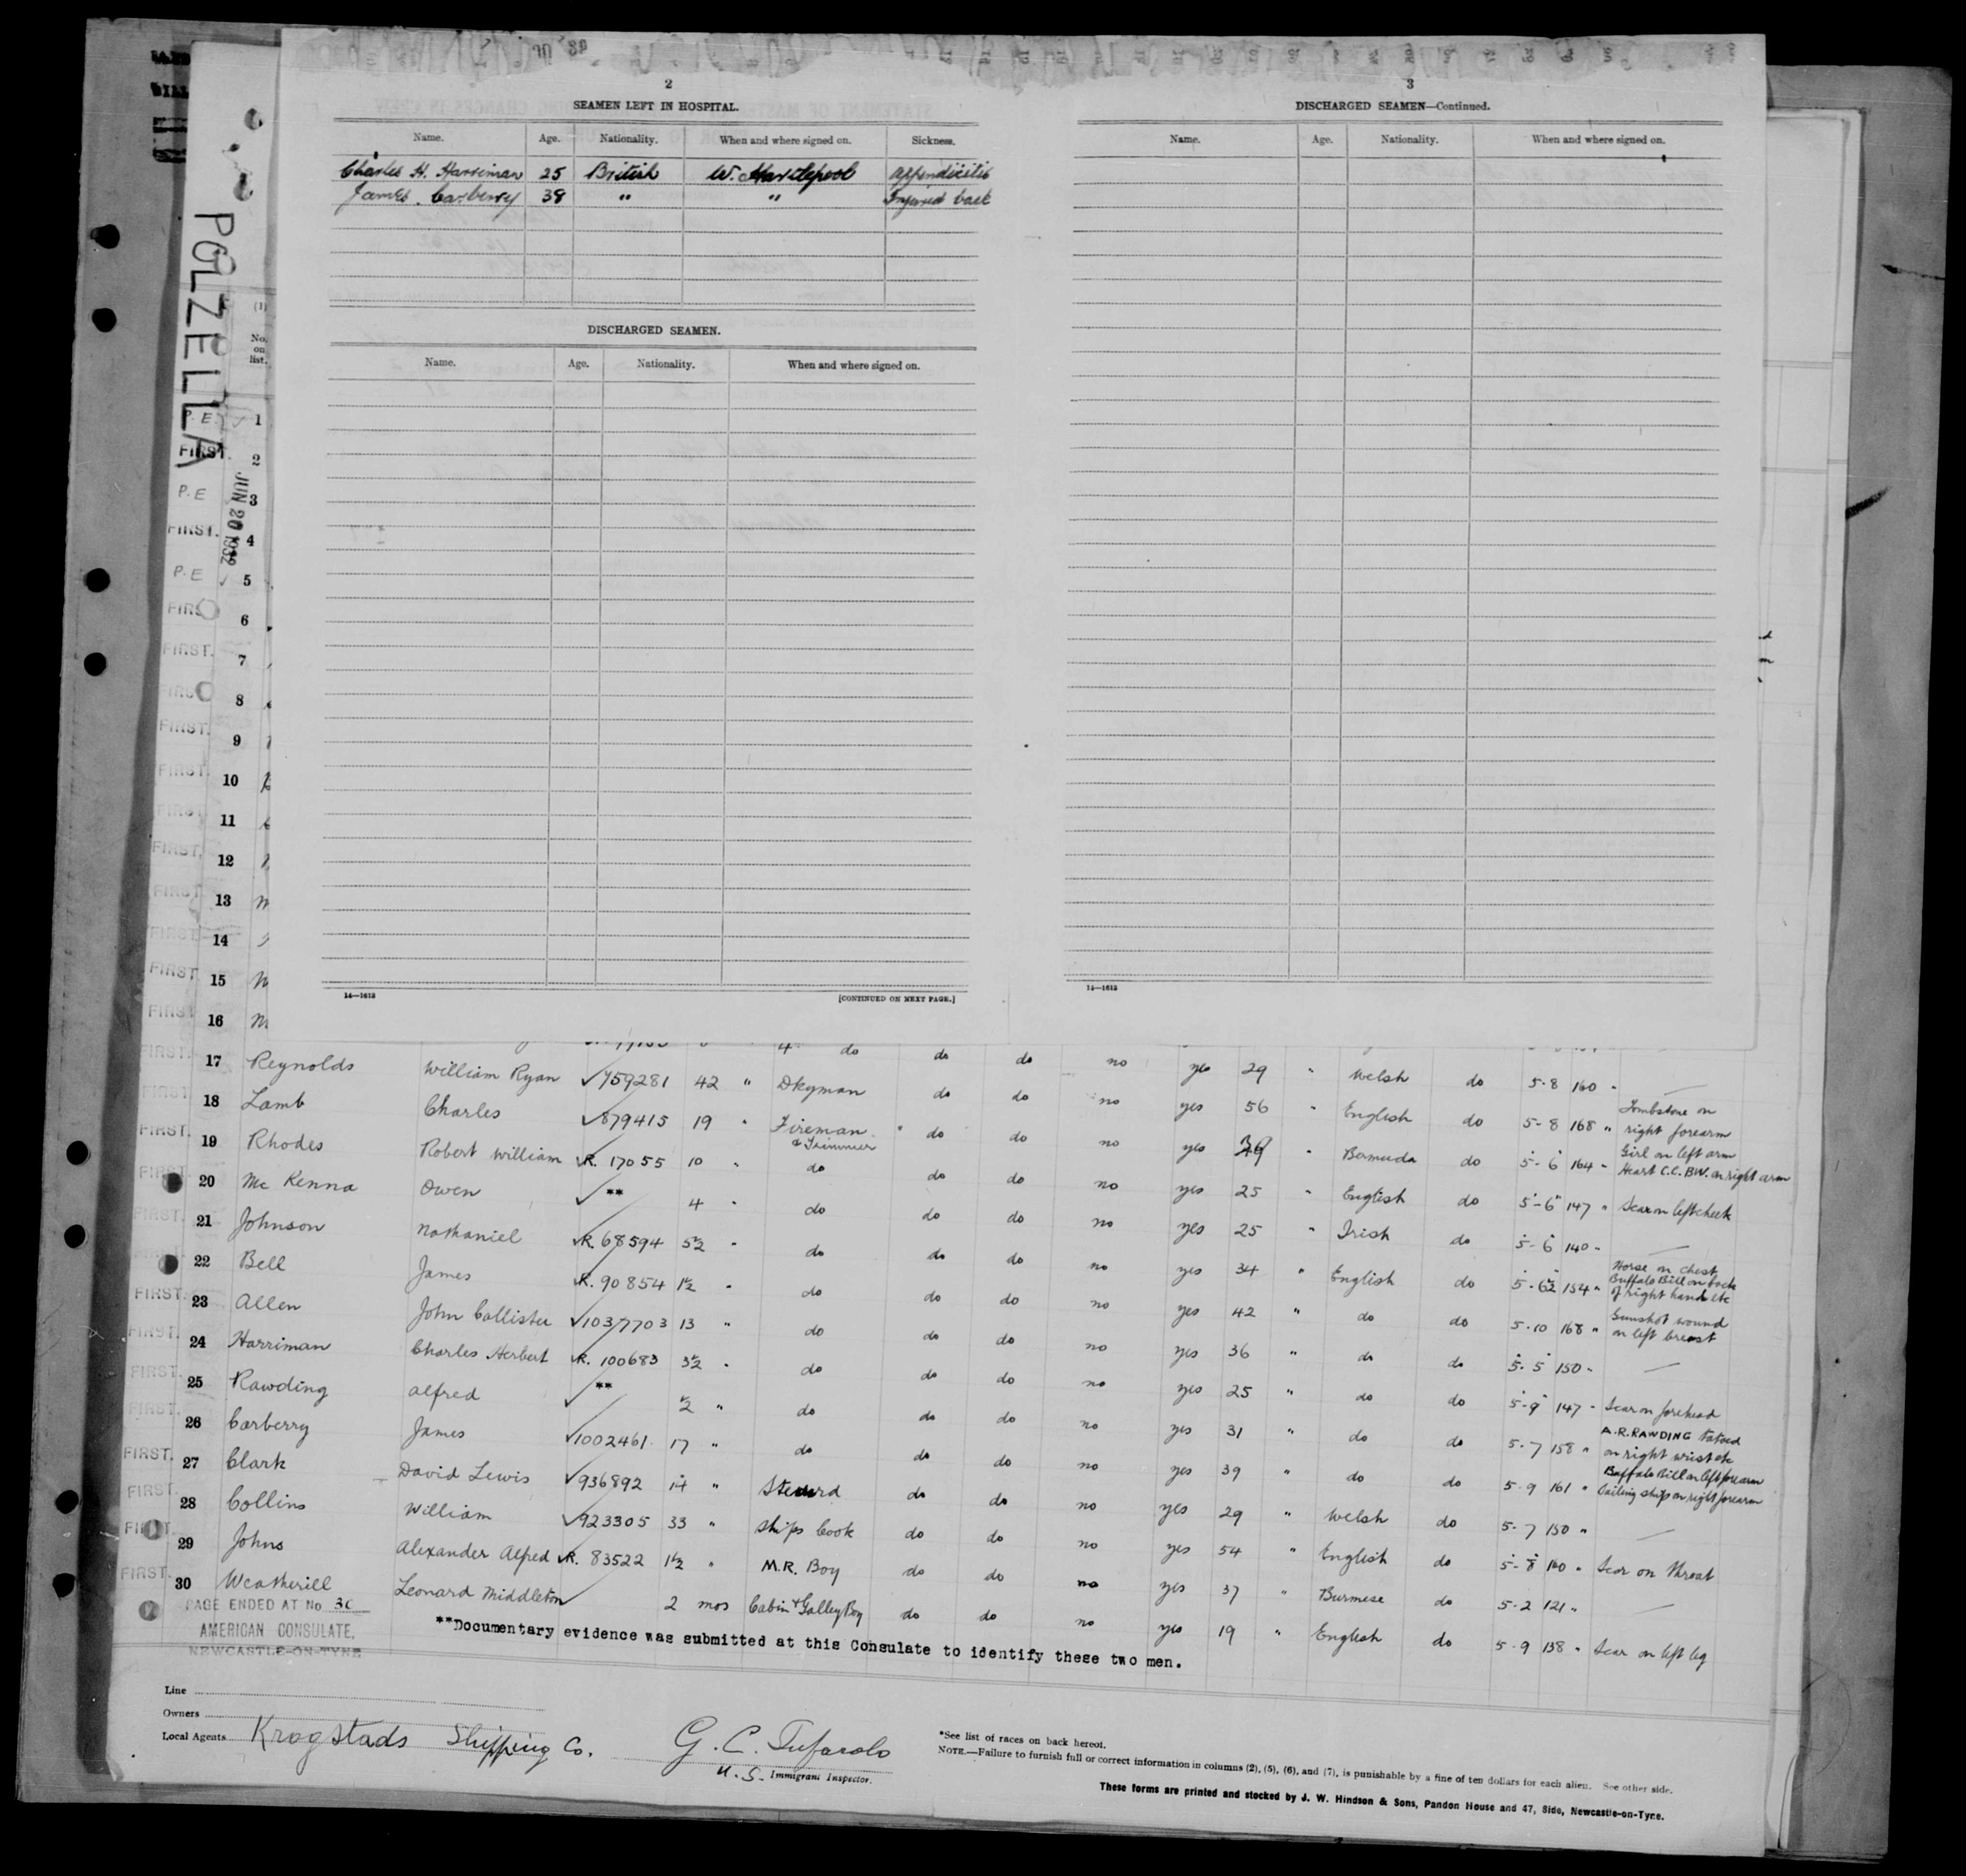 2
SEAMEN LEFT IN HOSPITAL.
Name. Age. Nationality. When and where signed on. Sickness.
Charles H. Harriman 25 British W. Hartlepool Appendicitis
James Carberry 38 " " Injured back
DISCHARGED SEAMEN.
Name. Age. Nationality. When and where signed on.
14—1613
[CONTINUED ON NEXT PAGE.]
3
DISCHARGED SEAMEN—Continued.
Name. Age. Nationality. When and where signed on.
14—1613
POLZELLA
JUN 20 1932
(1)
No. on list.
P.E. 1
FIRST. 2
P.E 3
FIRST. 4
P.E 5
6
FIRST. 7
8
FIRST. 9
FIRST. 10
FIRST 11
FIRST. 12
FIRST 13
FIRST 14
FIRST 15
FIRST 16
4th do
FIRST. 17 Reynolds William Ryan 759281 42 " Dkyman do do no yes 29 " Welsh do 5-8 160 "
FIRST 18 Lamb Charles 879415 19 " Fireman & Trimmer do do no yes 56 " English do 5-8 168 " Tombstone on right forearm
FIRST. 19 Rhodes Robert William R. 17055 10 " do do do no yes 39 " Bermuda do 5-6 164 " Girl on left arm Heart C.C.B.W. on right arm
FIRST 20 Mc Kenna Owen ** 4 " do do do no yes 25 " English do 5-6 147 " Scar on left cheek
FIRST. 21 Johnson Nathaniel R. 68594 5½ " do do do no yes 25 " Irish do 5-6 140 "
22 Bell James R. 90854 1½ " do do do no yes 34 " English do 5-6½ 154 " Horse on chest Buffalo Bill on back of right hand etc
FIRST 23 Allen John Callister 1037703 13 " do do do no yes 42 " do do 5-10 168 " Gunshot wound on left breast
FIRST. 24 Harriman Charles Herbert R. 100683 3½ " do do do no yes 36 " do do 5-5 150 "
FIRST. 25 Rawding Alfred ** ½ " do do do no yes 25 " do do 5-9 147 " Scar on forehead
FIRST. 26 Carberry James 1002461 17 " do do do no yes 31 " do do 5-7 158 " A.R. RAWDING tatoed on right wrist etc
FIRST. 27 Clark David Lewis 936892 14 " Steward do do no yes 39 " do do 5-9 161 " Buffalo Bill on left forearm Sailing ship on right forearm
FIRST. 28 Collins William 923305 33 " Ships Cook do do no yes 29 " Welsh do 5-7 150 "
FIRST. 29 Johns Alexander Alfred R. 83522 1½ " M.R. Boy do do no yes 54 " English do 5-8 160 " Scar on throat
FIRST. 30 Weatherill Leonard Middleton 2 mos Cabin & Galley Boy do do no yes 37 " Burmese do 5-2 121 "
no yes 19 " English do 5-9 138 " Scar on left leg
PAGE ENDED AT No 30
AMERICAN CONSULATE,
NEWCASTLE-ON-TYNE
**Documentary evidence was submitted at this Consulate to identify these two men.
Line
Owners
Local Agents Krogstads Shipping Co.
G. C. Tufarolo
U.S. Immigrant Inspector.
*See list of races on back hereof.
NOTE.—Failure to furnish full or correct information in columns (2), (5), (6), and (7), is punishable by a fine of ten dollars for each alien. See other side.
These forms are printed and stocked by J. W. Hindson & Sons, Pandon House and 47, Side, Newcastle-on-Tyne.